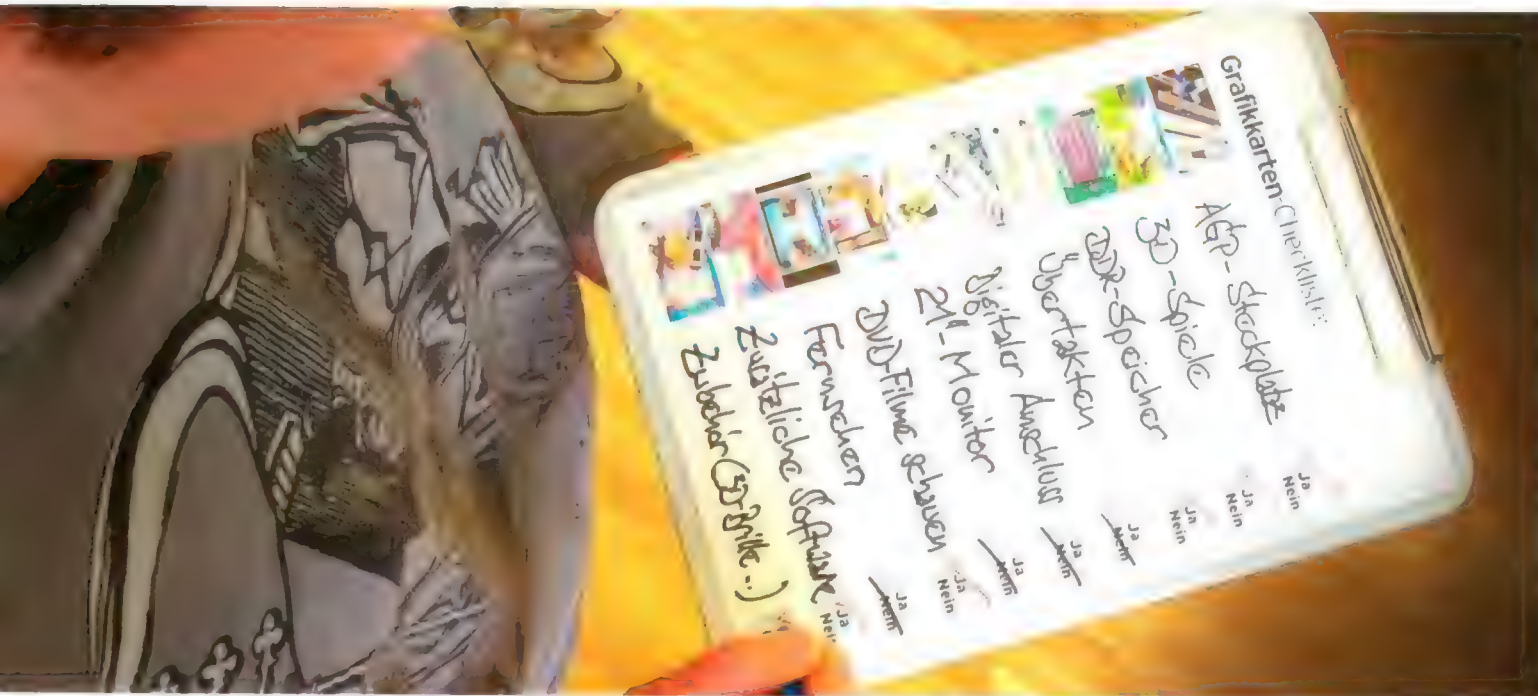 Grafikkarten-Checkliste
AGP-Steckplatz
Ja
Nein
3D-Spiele
Ja
Nein
DDR-Speicher
Ja
Nein
Übertakten
Ja
Nein
Digitaler Anschluss
Ja
Nein
21"-Monitor
Ja
Nein
DVD-Filme schauen
Ja
Nein
Fernsehen
Ja
Nein
Zusätzliche Software
Ja
Zubehör (3D-Brille..)